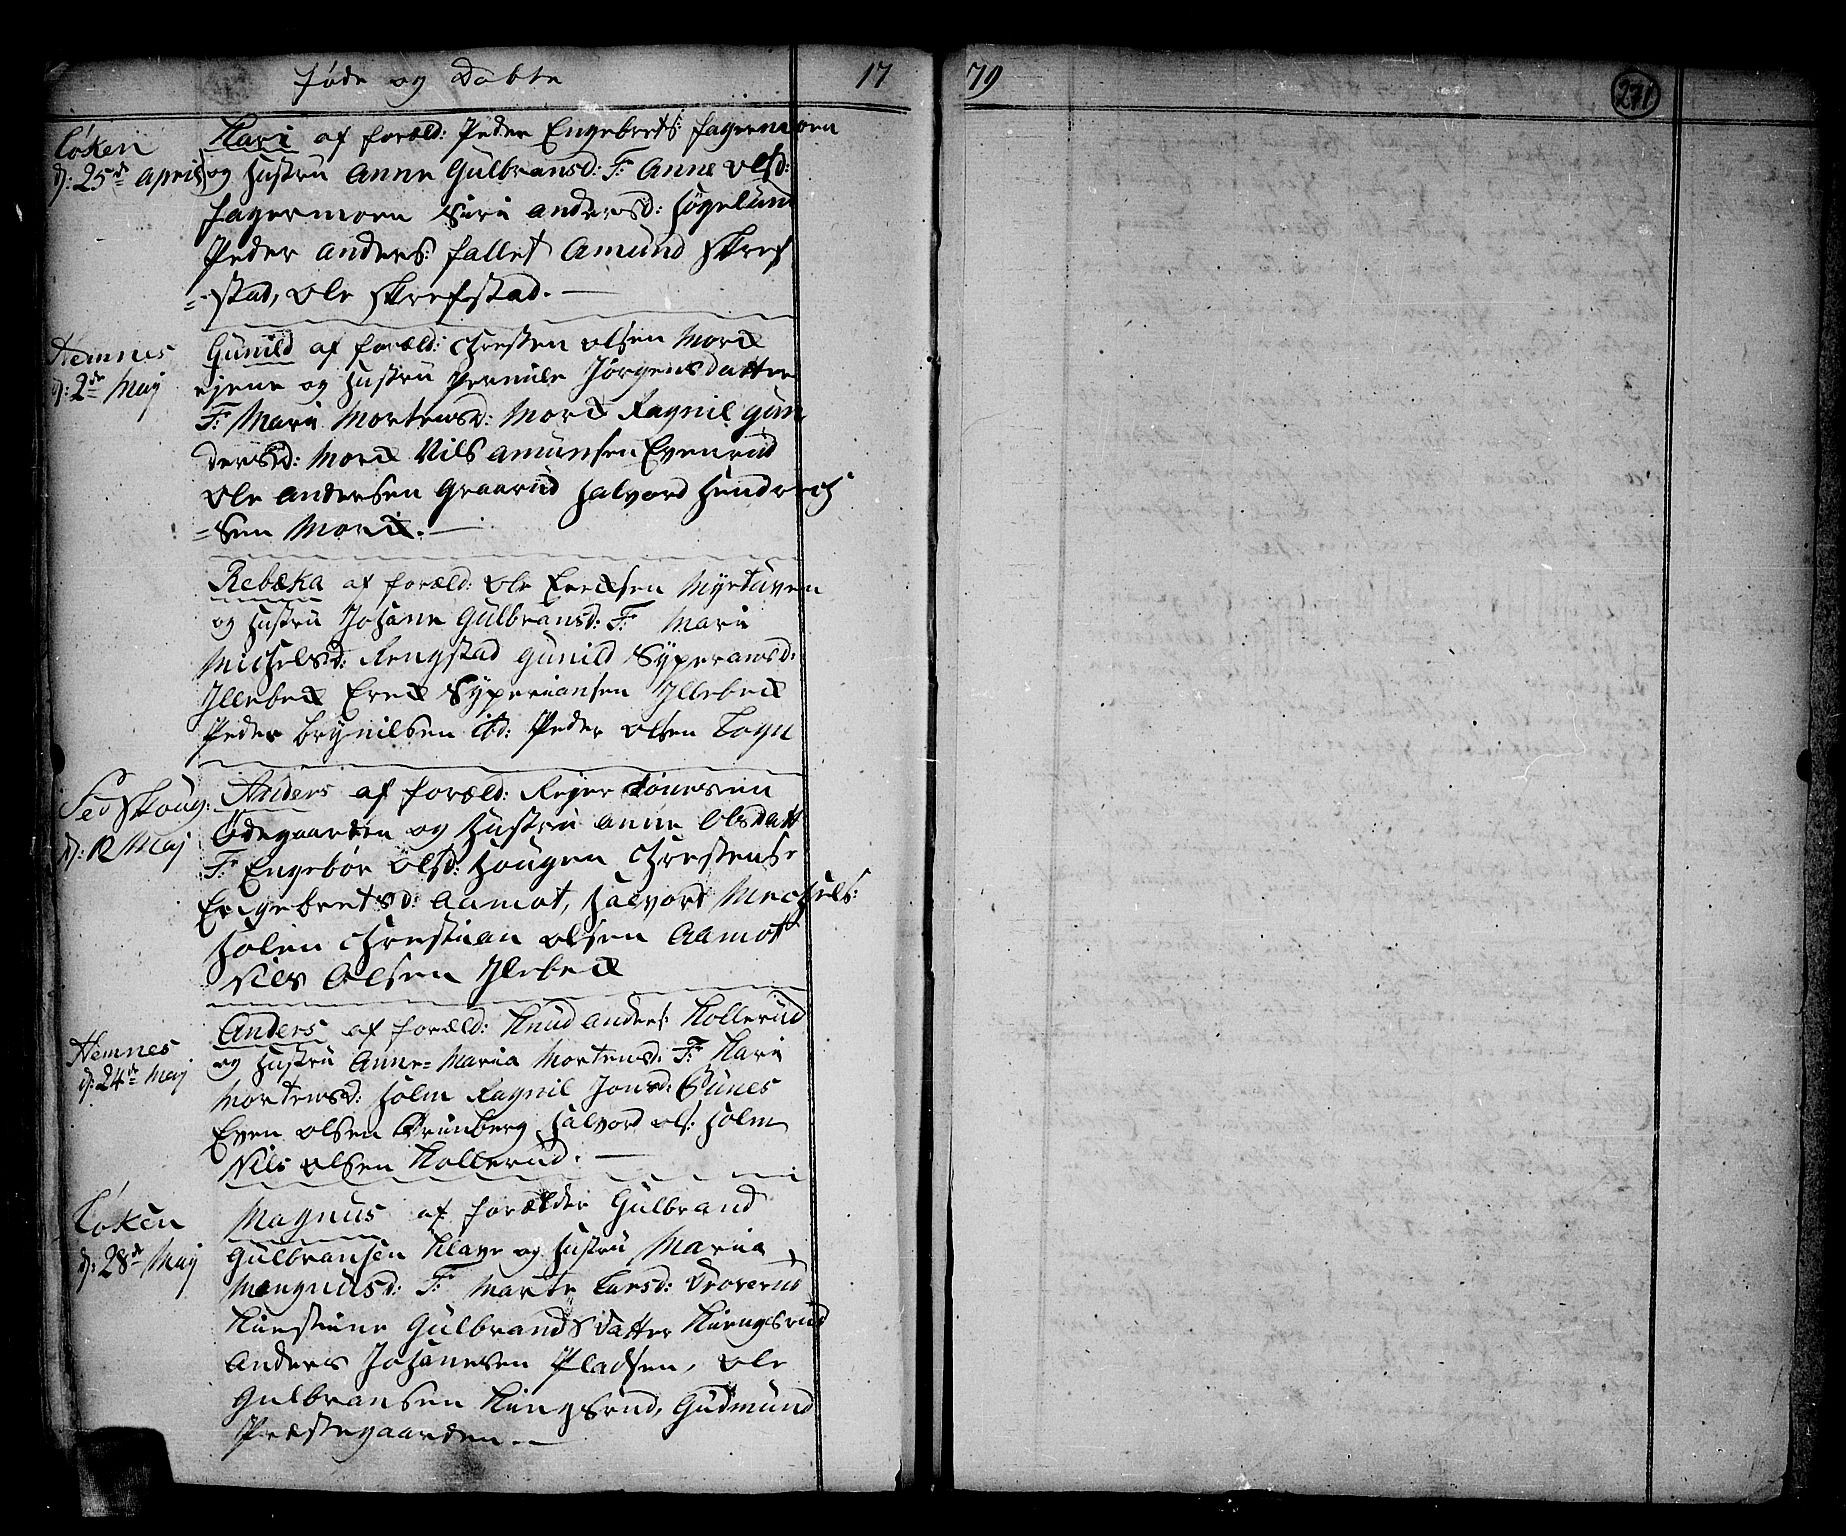 føde og Døbte 17 79 271
Løken
d: 25de April
Kari af foræld: Peder Engebrets: fagermoen
og Hustru Anne Gulbransd: F: Anne Olsd:
fagermoen Siri Andersd: Høgelund
Peder Anders: fallet Amund Skref
=stad, Ole Skrefstad.
Hemnes
d: 2de Maj
Gunild af foræld: Christen Olsen Morck
ejene og Hustru Pernile Jørgensdatter
F: Mari Mortensd: Morck Ragnil Gun
dersd: Morck Nils Amunsen Evenrud
Ole Andersen Graarud Halvord Hendrich
=sen Morck.
Rebæka af foræld: Ole Ericksen Myrtuven
og Hustru Johane Gulbransd: F: Mari
Michelsd: Rengstad Gunild Syperiansd:
Illebeck Erick Syperiansen Illebeck
Peder Brynilsen ibd: Peder Olsen Togn
Set Skoug:
d: 12 Maj
Anders af foræld: Rejer Tønesen
Ødegaarden og Hustru Anne Olsdatt
F: Engebør Olsd: Hougen Christense
Engebretsd: Aamot, Halvort Mechels:
Holen Christian Olsen Aamot
Nils Olsen Ilebeck
Hemnes
d: 24de Maj
Anders af foræld: Knud Anders: Kollerud
og Hustru Anne=Maria Mortensd: F: Kari
Mortensd: Holm Ragnil Jonsd: Bunes
Even Olsen Grünberg Halvord Ols: Holm
Nils Olsen Kollerud.
Løken
d: 28de Maj
Magnus af forælder Gulbrand
Gulbransen Klave og Hustru Maria
Mangnusd: F: Marte Larsd: Droverud
Kirstine Gulbrandsdatter Kiengsrud
Anders Johanesen Pladsen, Ole
Gulbransen Kingsrud, Gudmund
Præstegaarden.